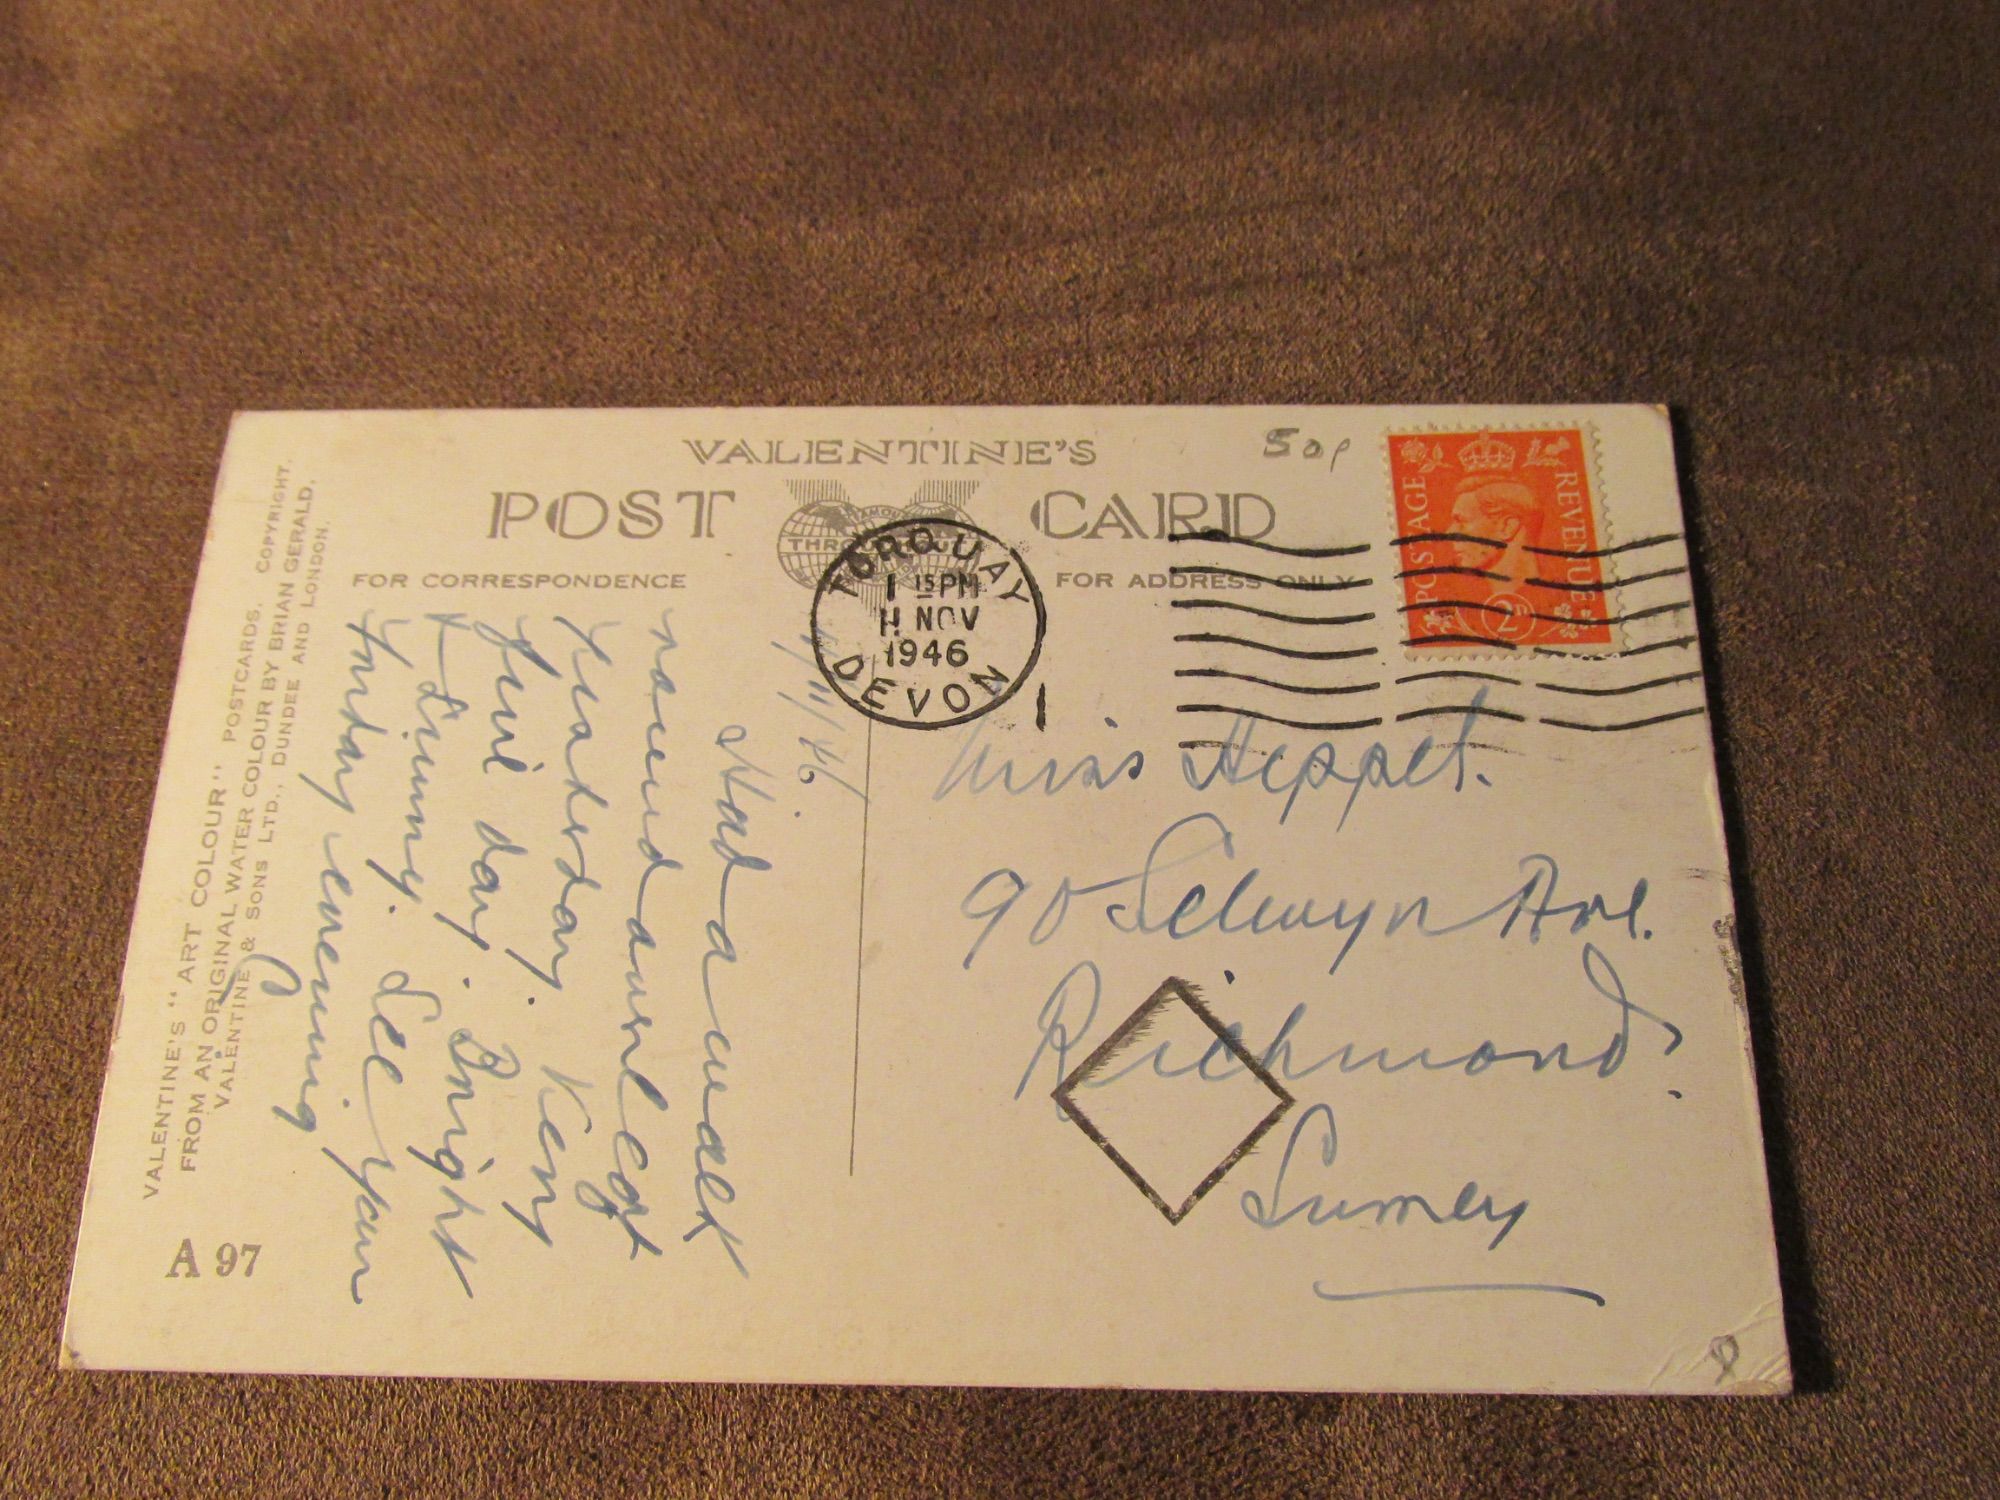 VALENTINE'S
POST CARD
FOR CORRESPONDENCE
FOR ADDRESS ONLY
50p
POSTAGE
REVENUE
2D
TORQUAY
1 15 PM
11 NOV
1946
DEVON
VALENTINE'S "ART COLOUR" POSTCARDS. COPYRIGHT.
FROM AN ORIGINAL WATER COLOUR BY BRIAN GERALD.
VALENTINE & SONS LTD., DUNDEE AND LONDON.
A 97
11/11/46.
Had a walk
round
yesterday. Very
day. Bright
+ Sunny. See you
evening
Miss Heppel.
90 Selwyn Ave.
Richmond.
Surrey